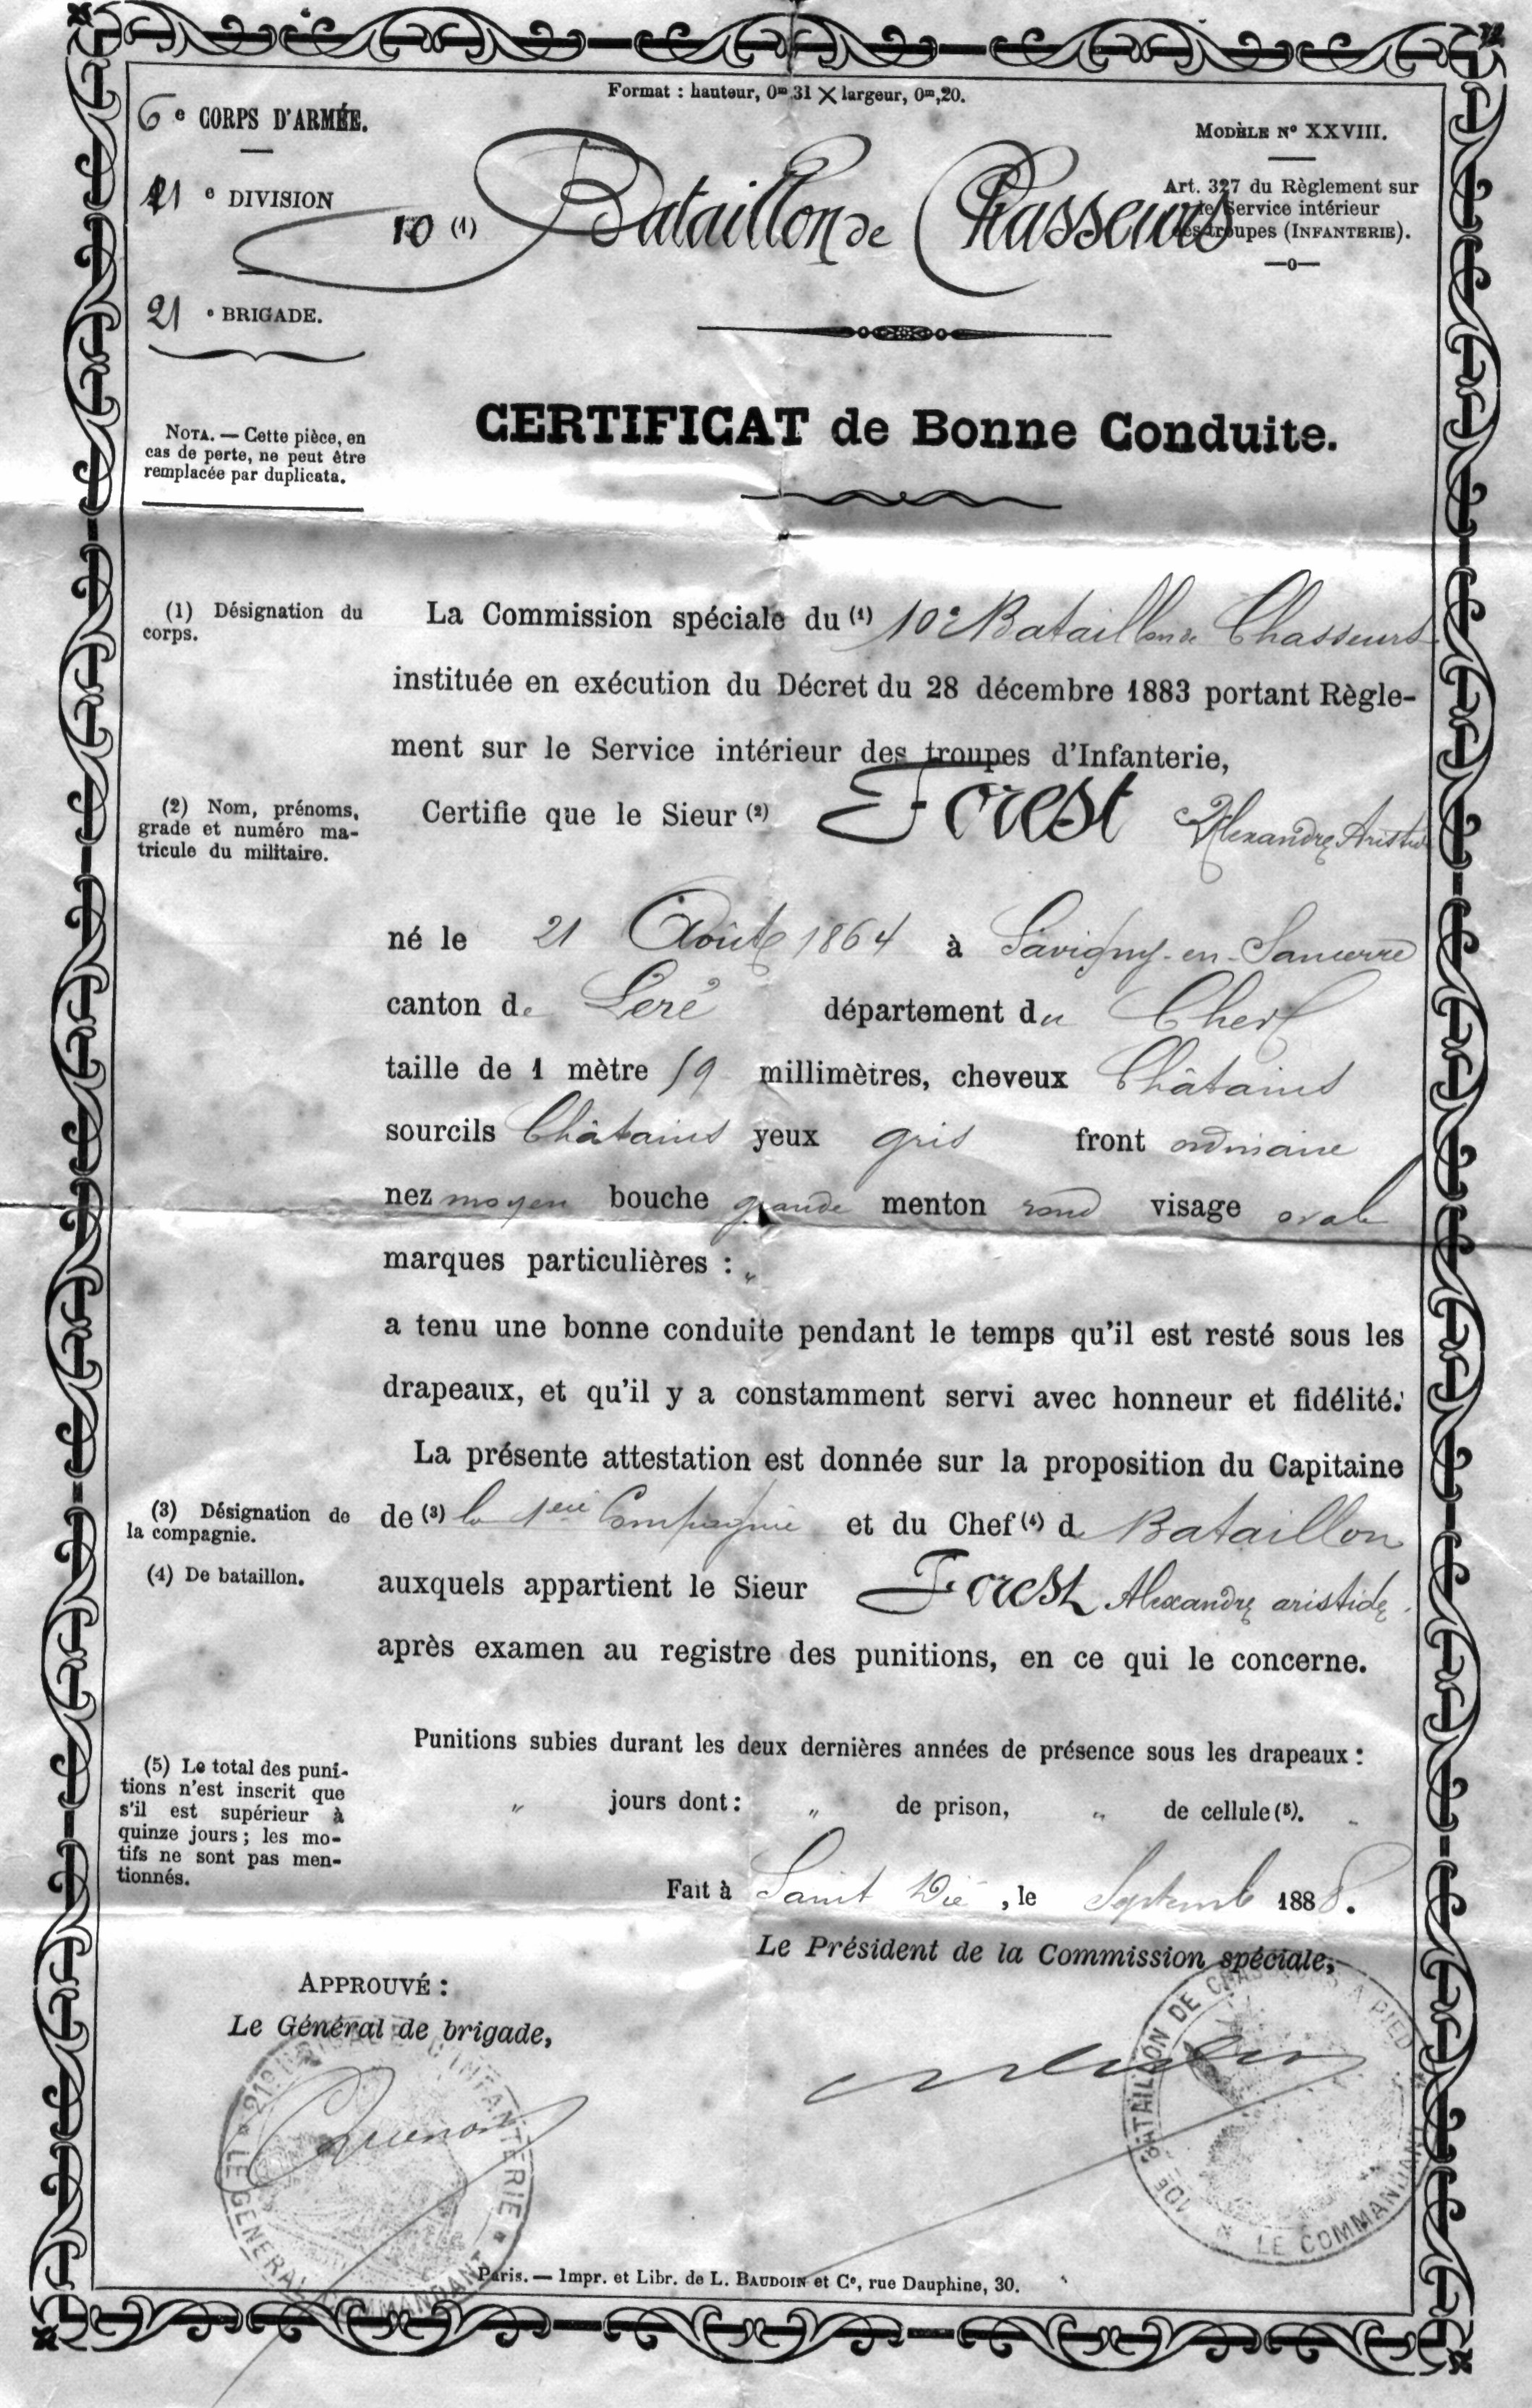 Format : hauteur, 0m,31 × largeur, 0m,20.
6e CORPS D'ARMÉE.
MODÈLE No XXVIII.
e DIVISION
10 (1) Bataillon de Chasseurs
Art. 327 du Règlement sur
le Service intérieur
des troupes (INFANTERIE).
21e BRIGADE.
CERTIFICAT de Bonne Conduite.
NOTA. — Cette pièce, en
cas de perte, ne peut être
remplacée par duplicata.
(1) Désignation du
corps.
La Commission spéciale du (1) 10e Bataillon de Chasseurs
instituée en exécution du Décret du 28 décembre 1883 portant Règle-
ment sur le Service intérieur des troupes d'Infanterie,
(2) Nom, prénoms,
grade et numéro ma-
tricule du militaire.
Certifie que le Sieur (2) Forest Alexandre Aristide
né le 21 Août 1864 à Savigny-en-Sancerre
canton de Leré département du Cher
taille de 1 mètre 59 millimètres, cheveux Châtains
sourcils Châtains yeux gris front ordinaire
nez moyen bouche grande menton rond visage ovale
marques particulières : "
a tenu une bonne conduite pendant le temps qu'il est resté sous les
drapeaux, et qu'il y a constamment servi avec honneur et fidélité.
La présente attestation est donnée sur la proposition du Capitaine
(3) Désignation de
la compagnie.
de (3) la 1ere Compagnie et du Chef (4) de Bataillon
(4) De bataillon.
auxquels appartient le Sieur Forest Alexandre aristide
après examen au registre des punitions, en ce qui le concerne.
Punitions subies durant les deux dernières années de présence sous les drapeaux :
(5) Le total des puni-
tions n'est inscrit que
s'il est supérieur à
quinze jours ; les mo-
tifs ne sont pas men-
tionnés.
" jours dont : " de prison, " de cellule (5).
Fait à Saint Dié, le Septemb 1888.
Le Président de la Commission spéciale,
APPROUVÉ :
Le Général de brigade,
10E BATAILLON DE CHASSEURS A PIED * LE COMMANDANT *
21E BRIGADE D'INFANTERIE * LE GENERAL COMMANDANT *
Paris. — Impr. et Libr. de L. BAUDOIN et Ce, rue Dauphine, 30.